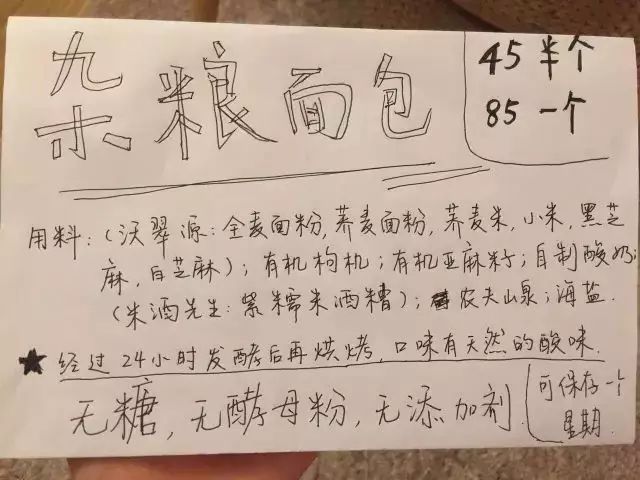 杂粮面包
45 半个
85 一个
用料:(沃翠源:全麦面粉,荞麦面粉,荞麦米,小米,黑芝
麻,白芝麻);有机枸杞;有机亚麻籽;自制酸奶;
(米酒先生:紫糯米酒糟);农夫山泉;海盐.
★经过24小时发酵后再烘烤,口味有天然的酸味.
无糖,无酵母粉,无添加剂.
可保存一个
星期.